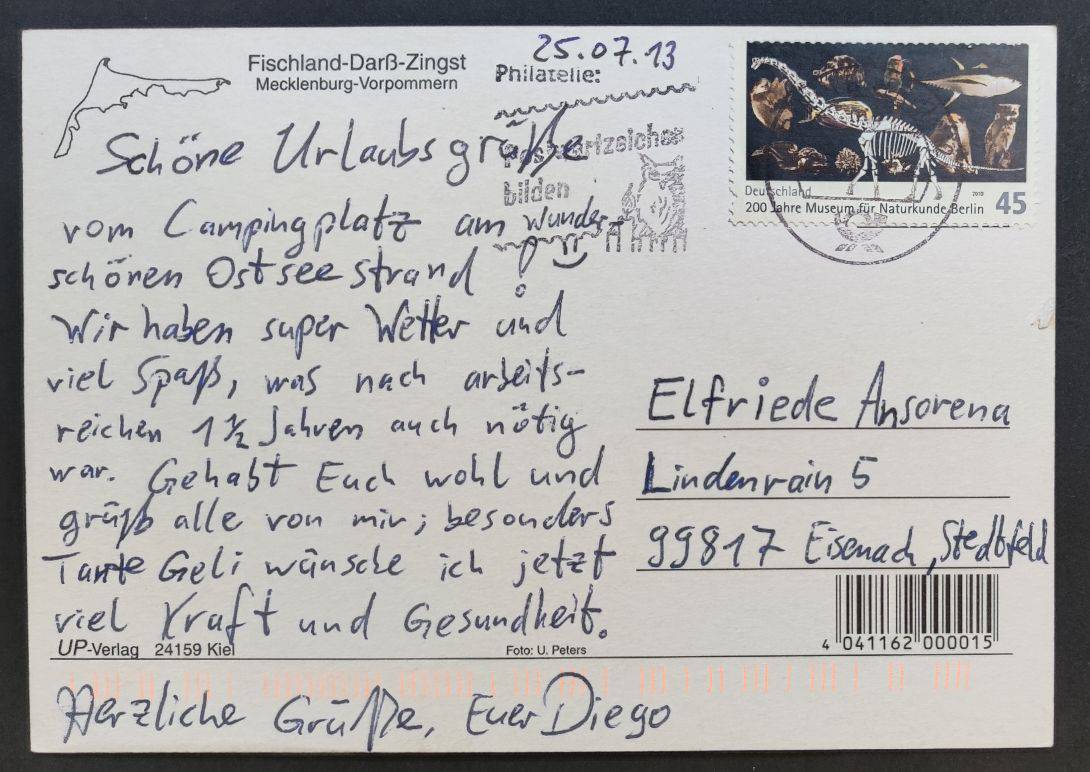 Fischland-Darß-Zingst
Mecklenburg-Vorpommern
25.07.13
Philatelie:
Postwertzeichen
bilden
Deutschland
2010
200 Jahre Museum für Naturkunde Berlin 45
Schöne Urlaubsgrüße
vom Campingplatz am wunder-
schönen Ostseestrand!
Wir haben super Wetter und
viel Spaß, was nach arbeits-
reichen 1 ½ Jahren auch nötig
war. Gehabt Euch wohl und
grüßt alle von mir; besonders
Tante Geli wünsche ich jetzt
viel Kraft und Gesundheit.
Herzliche Grüße, Euer Diego
Elfriede Ansorena
Lindenrain 5
99817 Eisenach, Stedtfeld
4 041162 000015
UP-Verlag 24159 Kiel
Foto: U. Peters